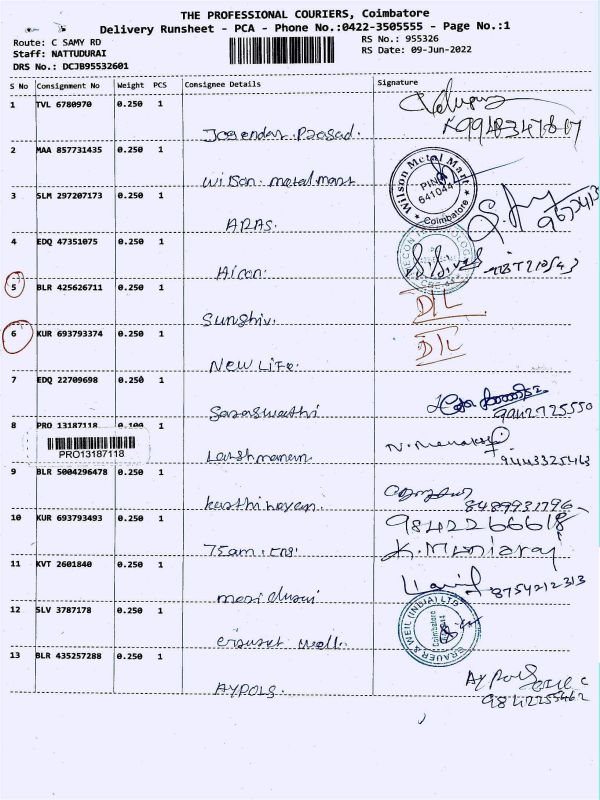 THE PROFESSIONAL COURIERS, Coimbatore
Delivery Runsheet - PCA - Phone No.:0422-3505555 - Page No.:1
Route: C SAMY RD
RS No.: 955326
Staff: NATTUDURAI
RS Date: 09-Jun-2022
DRS No.: DCJB95532601
S No Consignment No Weight PCS Consignee Details Signature
1 TVL 6780970 0.250 1
Jogendar. Prasad.
2 MAA 857731435 0.250 1
Wilson. metal mart
Wilson Metal Mart
PIN
641044
Coimbatore
3 SLM 297207173 0.250 1
ARAS.
4 EDQ 47351075 0.250 1
5 BLR 425626711 0.250 1
D/L
Sunshiv.
6 KUR 693793374 0.250 1
D/L
NEW LIFE.
7 EDQ 22709698 0.250 1
Saraswathi
9942725550
8 PRO 13187118 0.100 1
PRO13187118
Lakshmanan
9443325463
9 BLR 5004296478 0.250 1
8489931796
10 KUR 693793493 0.250 1
9842266618
Team. Eng.
K. Muniaraj
11 KVT 2601840 0.250 1
8754212313
12 SLV 3787178 0.250 1
BRAUER & WEIL (INDIA) LTD
Coimbatore
13 BLR 435257288 0.250 1
AYPOLS.
Aypols
9842255462